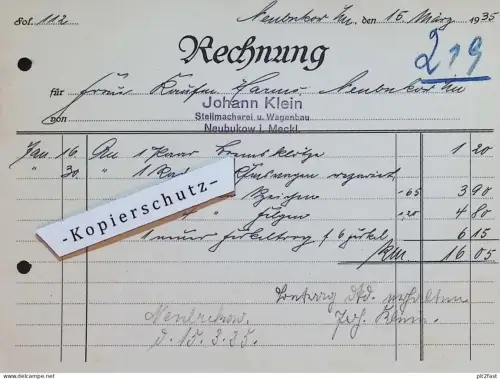 Fol. 112 Neubukow i/M, den 15. März 1935
Rechnung
219
für Frau Kaufm. Harms, Neubukow i/M
von Johann Klein
Stellmacherei u. Wagenbau
Neubukow i. Meckl.
Jan 16. An 1 Paar Bremsklötze 1 20
" 30. " 1 Rad
-Kopierschutz-
Speichen -65 3 90
" Felgen 1,20 4 80
1 neuer f. 6 6 15
RM. 16 05
Betrag dkd. erhalten
Neubukow, Joh. Klein.
d. 15.3.35.